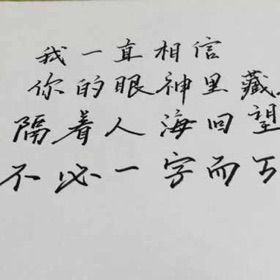 我一直相信
你的眼神里藏
隔着人海回望
不必一字而